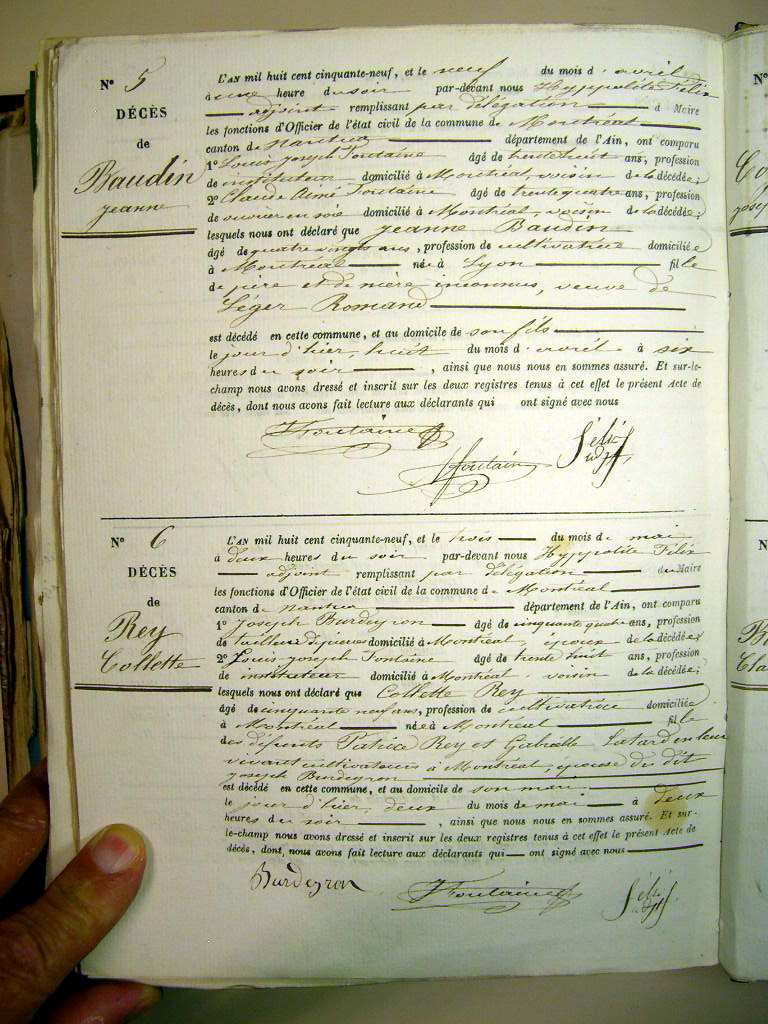 N° 5
DÉCÈS
de
Baudin
jeanne
L'AN mil huit cent cinquante-neuf, et le neuf du mois d'avril
à une heure du soir par-devant nous Hyppolite Félix
adjoint remplissant par délégation d Maire
les fonctions d'Officier de l'état civil de la commune de Montréal
canton de nantua département de l'Ain, ont comparu
1° Louis joseph Fontaine âgé de trente huit ans, profession
de instituteur domicilié à Montréal, voisin de la décédée;
2° Claude Aimé Fontaine âgé de trente quatre ans, profession
de ouvrier en soie domicilié à Montréal, voisin de la décédée;
lesquels nous ont déclaré que jeanne Baudin
âgé de quatre vingts ans, profession de cultivatrice domiciliée
à Montréal née à Lyon fille
de père et de mère inconnus, veuve de
Léger Romand
est décédé en cette commune, et au domicile de son fils
le jour d'hier, huit du mois d'avril à six
heures du soir, ainsi que nous nous en sommes assuré. Et sur-le-
champ nous avons dressé et inscrit sur les deux registres tenus à cet effet le présent Acte de
décès, dont nous avons fait lecture aux déclarants qui ont signé avec nous
Fontaine
Fontaine
Félix
adjt
N° 6
DÉCÈS
de
Rey
Collette
L'AN mil huit cent cinquante-neuf, et le trois du mois de mai
à deux heures du soir par-devant nous Hyppolite Félix
adjoint remplissant par délégation du Maire
les fonctions d'Officier de l'état civil de la commune de Montréal
canton de nantua département de l'Ain, ont comparu
1° joseph Burdeyron âgé de cinquante quatre ans, profession
de tailleur de pierres domicilié à Montréal, époux de la décédée;
2° Louis joseph Fontaine âgé de trente huit ans, profession
de instituteur domicilié à Montréal voisin de la décédée;
lesquels nous ont déclaré que Collette Rey
âgé de cinquante neuf ans, profession de cultivatrice domiciliée
à Montréal née à Montréal fille
des défunts Patrice Rey et Gabrielle Latard en leur
vivant cultivateurs à Montréal, épouse du dit
joseph Burdeyron
est décédé en cette commune, et au domicile de son mari
le jour d'hier, deux du mois de mai à deux
heures du soir, ainsi que nous nous en sommes assuré. Et sur-
le-champ nous avons dressé et inscrit sur les deux registres tenus à cet effet le présent Acte de
décès, dont nous avons fait lecture aux déclarants qui ont signé avec nous
Burdeyron
Fontaine
Félix
adjt